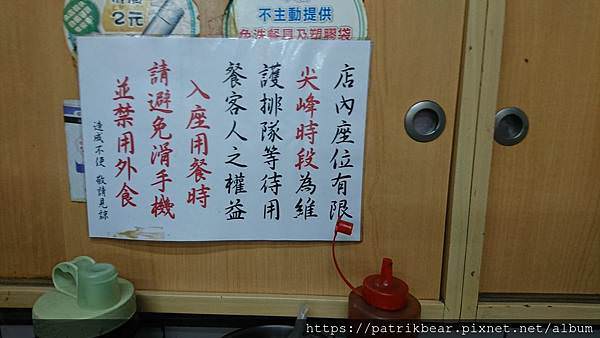 2元
不主動提供
免洗餐具及塑膠袋
店內座位有限
尖峰時段為維
護排隊等待用
餐客人之權益
入座用餐時
請避免滑手機
並禁用外食
造成不便 敬請見諒
https://patrikbear.pixnet.net/album